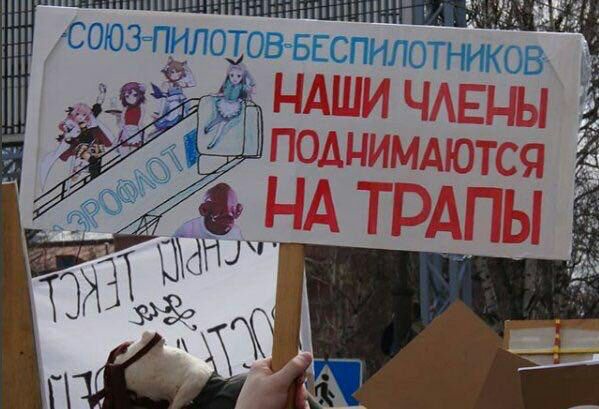 -СОЮЗ-ПИЛОТОВ-БЕСПИЛОТНИКОВ-
НАШИ ЧЛЕНЫ
ПОДНИМАЮТСЯ
НА ТРАПЫ
АЭРОФЛОТ
ТЕКСТ
для